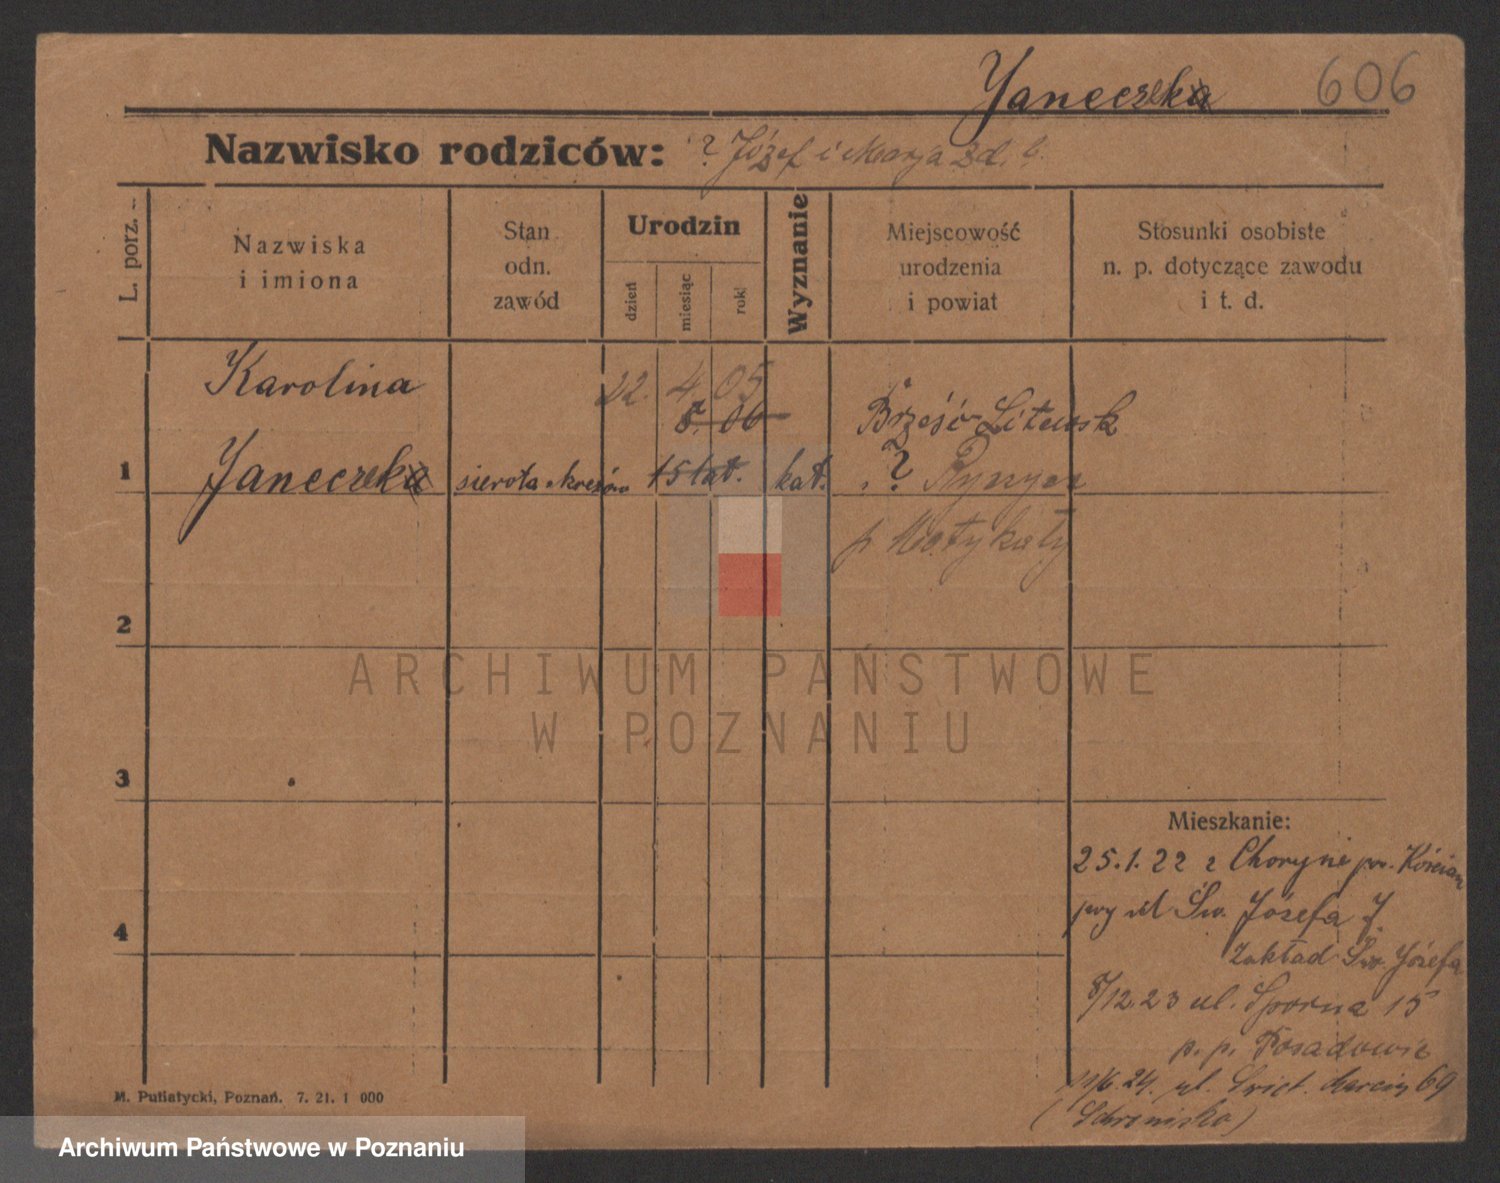 Janeczek 606
Nazwisko rodziców: ? Józef i Marja zd. ?
L. porz.
Nazwiska
i imiona
Stan
odn.
zawód
Urodzin
dzień
miesiąc
rok
Wyznanie
Miejscowość
urodzenia
i powiat
Stosunki osobiste
n. p. dotyczące zawodu
i t. d.
Karolina 22. 4 05
8. 06 Brześć Litewsk
1 Janeczek sierota z kresów 15 lat. kat. ?
p Motykały
2
ARCHIWUM PAŃSTWOWE
W POZNANIU
3
4
Mieszkanie:
25.1.22 z Choryni pow. Kościan
przy ul Św. Józefa 7.
Zakład Św. Józefa
8/12.23 ul. Sporna 15
p. p. Posadowie
24. ul. Świet. Marcin 69
(Schronisko)
M. Putiatycki, Poznań. 7. 21. 1 000
Archiwum Państwowe w Poznaniu